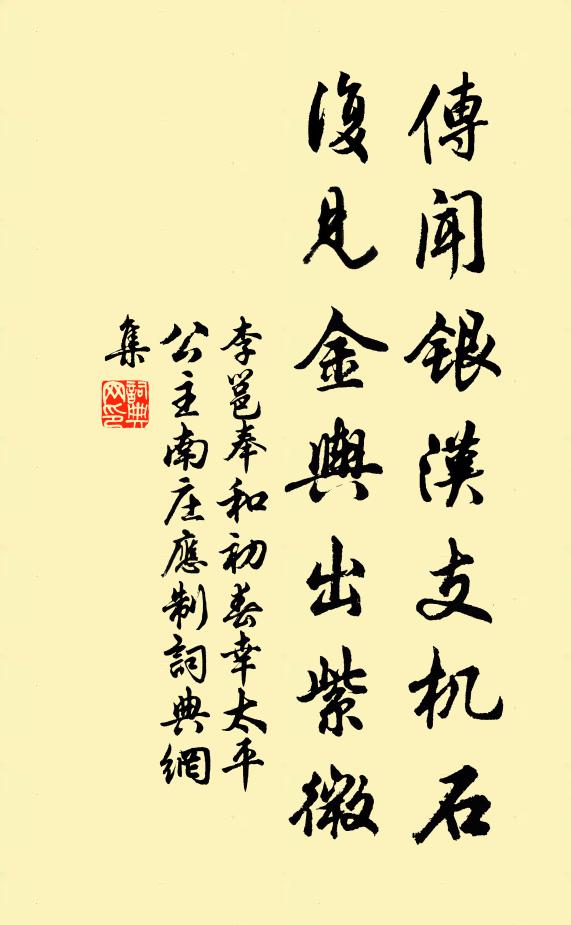 傳聞銀漢支机石
復見金輿出紫微
李邕奉和初春幸太平
公主南庄應制詞典網
集
詞典網印